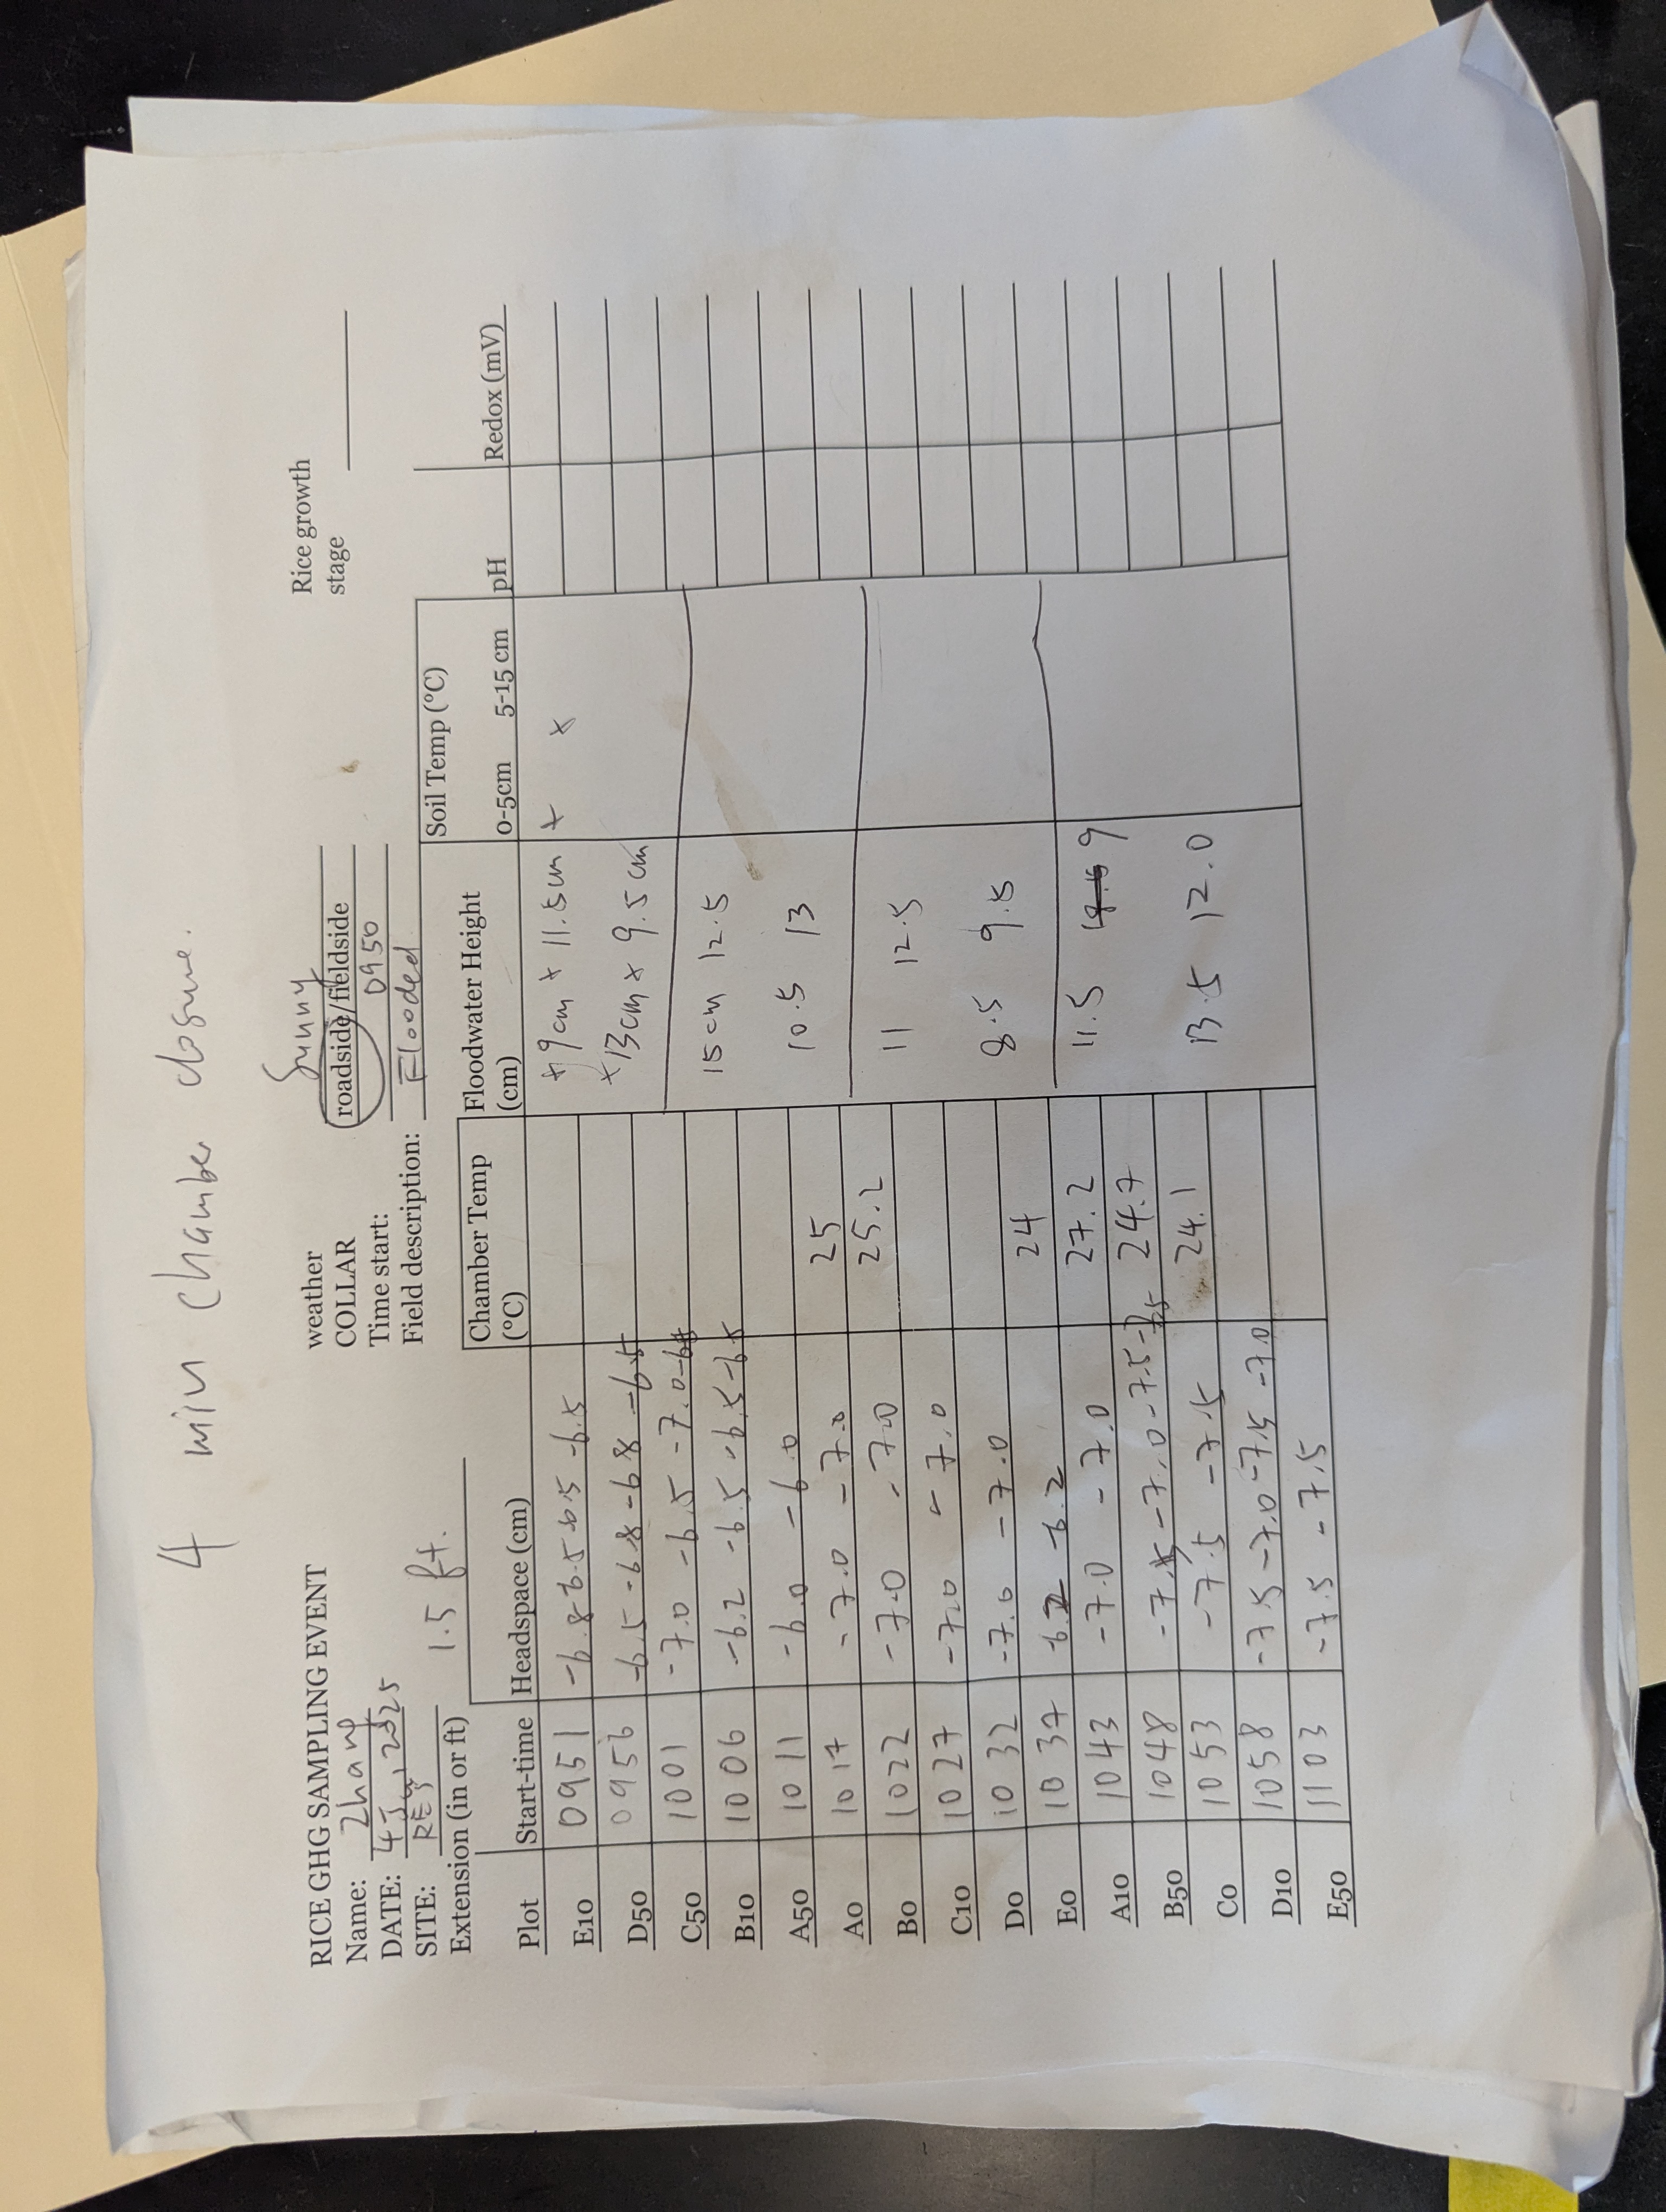 4 min chamber closure.
RICE GHG SAMPLING EVENT
Name: Zhang
DATE: 4 2025
SITE:
Extension (in or ft) 1.5 ft.
weather Sunny
COLLAR roadside/fieldside
Time start: 0950
Field description: Flooded
Rice growth
stage
Plot Start-time Headspace (cm) Chamber Temp (°C) Floodwater Height (cm) Soil Temp (°C) 0-5cm 5-15 cm pH Redox (mV)
E10 0951 -6.8 6.5 -6.5 -6.5 + 9cm + 11.5cm + x
D50 0956 -6.5 -6.8 -6.8 -6.5 +13cm x 9.5cm
C50 1001 -7.0 -6.5 -7.0
B10 1006 -6.2 -6.5 -6.5 -6.5 15cm 12.5
A50 1011 -6.0 -6.0 10.5 13
A0 1017 -7.0 -7.0 25
B0 1022 -7.0 -7.0 25.2 11 12.5
C10 1027 -7.0 -7.0
D0 1032 -7.0 -7.0 8.5 9.5
E0 1037 -6.2 -6.2 24
A10 1043 -7.0 -7.0 27.2 11.5 9
B50 1048 -7.5 -7.0 -7.5 24.7
C0 1053 -7.5 -7.5 24.1 13.5 12.0
D10 1058 -7.5 -7.0 -7.5 -7.0
E50 1103 -7.5 -7.5